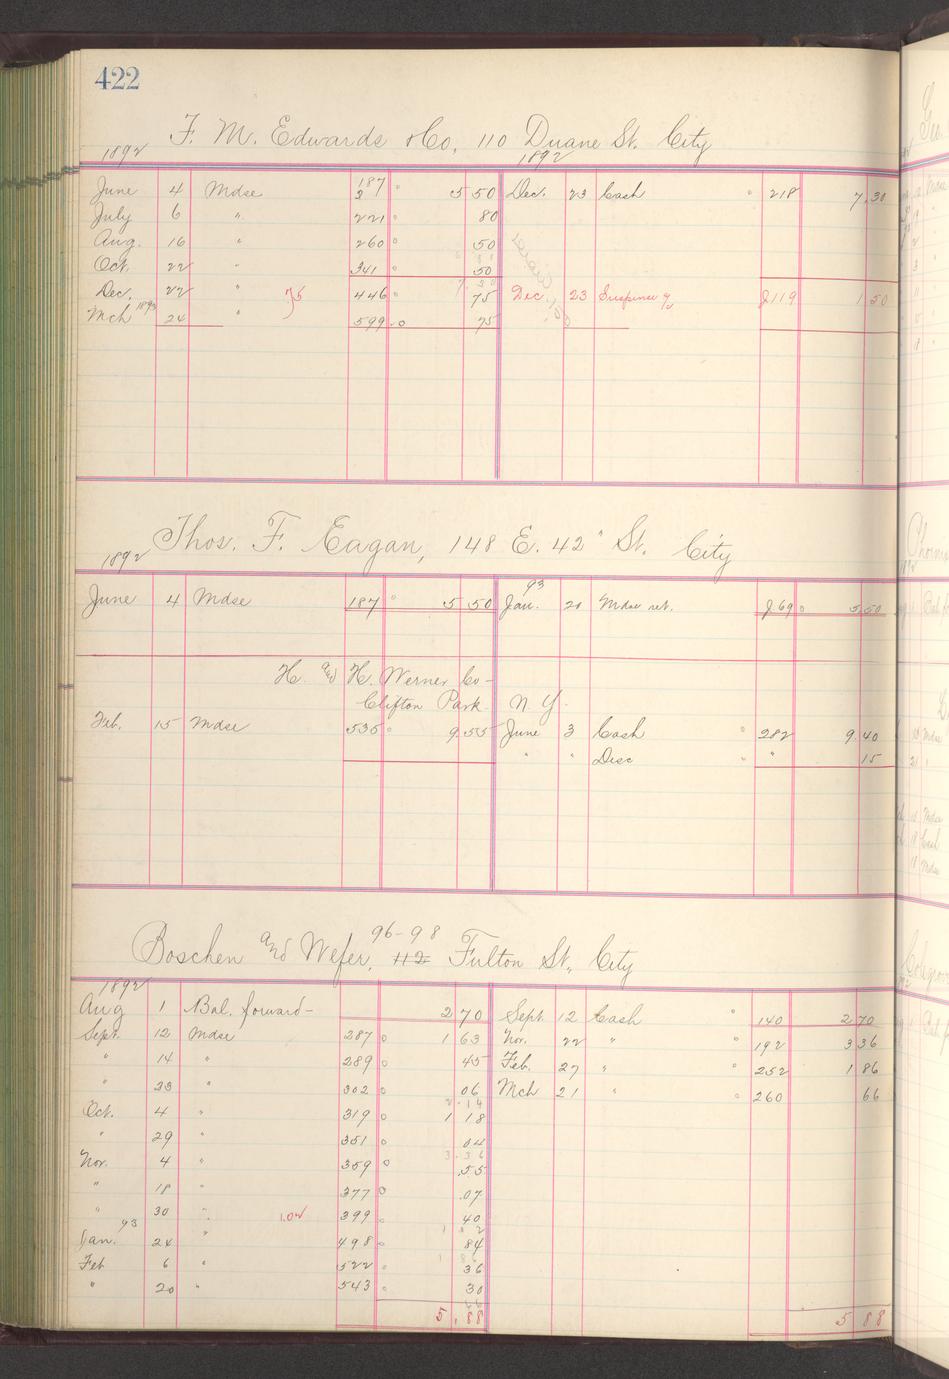 422
F. M. Edwards & Co, 110 Duane St. City
1892 1892
June 4 Mdse 187 5 50 Dec. 23 Cash 218 7.30
July 6 " 221 80
Aug. 16 " 260 50
Oct. 22 " 341 50
7.30
Dec. 22 " 75 446 75 Dec. 23 Suspense J119 1 50
Mch 1893 24 " 599 75
Thos. F. Eagan, 148 E. 42" St. City
1892 93
June 4 Mdse 187 5 50 Jan. 20 Mdse ret. J69 5.50
H. and H. Werner Co -
Clifton Park N. Y.
Feb. 15 Mdse 535 9.55 June 3 Cash 282 9.40
" " Disc " 15
96-98
Boschen and Wefer, 112 Fulton St., City
1892
Aug 1 Bal. forward - 2 70 Sept. 12 Cash 140 2 70
Sept. 12 Mdse 287 1 63 Nov. 22 " 192 3 36
" 14 " 289 45 Feb. 27 " 252 1 86
" 23 " 302 06 Mch 21 " 260 66
2.14
Oct. 4 " 319 1 18
" 29 " 351 04
3.36
Nov. 4 " 359 .55
" 18 " 377 .07
" 30 " 1.02 399 40
93
Jan. 24 " 498 84
1 86
Feb 6 " 522 36
" 20 " 543 30
66
5.88 5 88